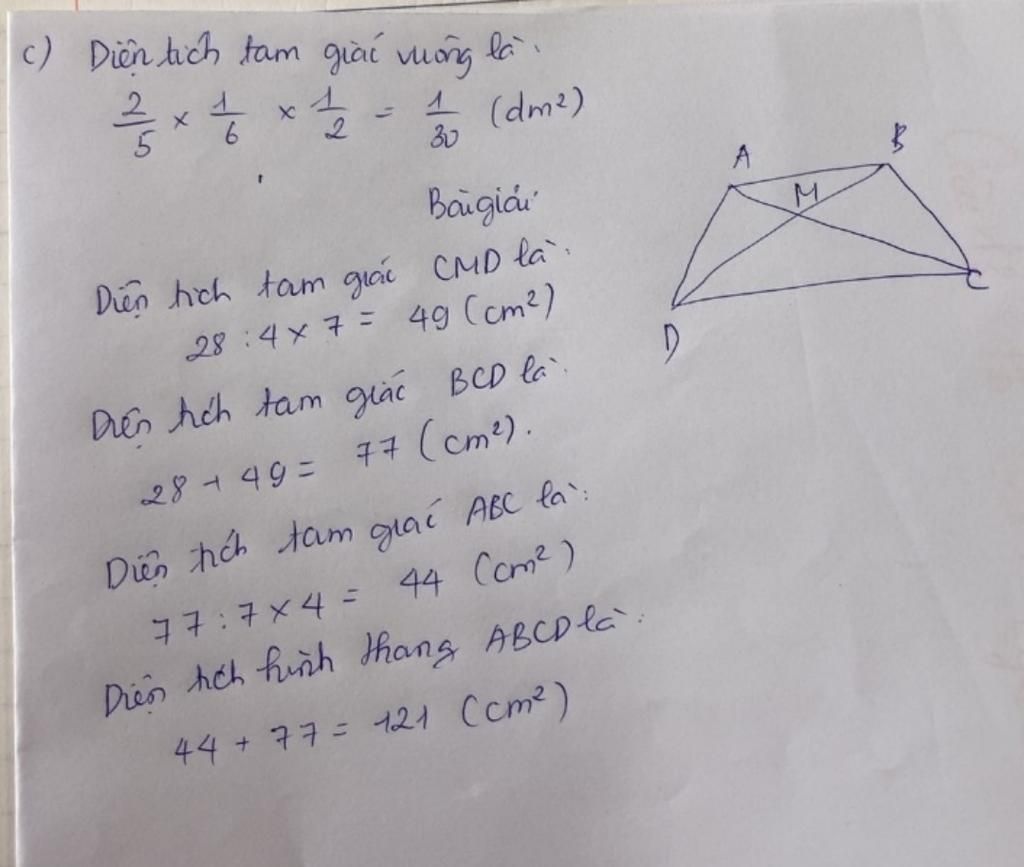 c) Diện tích tam giác vuông là:
2/5 × 1/6 × 1/2 = 1/30 (dm²)
Bài giải
Diện tích tam giác CMD là:
28 : 4 × 7 = 49 (cm²)
Diện tích tam giác BCD là:
28 + 49 = 77 (cm²).
Diện tích tam giác ABC là:
77 : 7 × 4 = 44 (cm²)
Diện tích hình thang ABCD là:
44 + 77 = 121 (cm²)
A
B
M
C
D